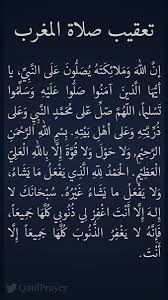 تعقيب صلاة المغرب
إِنَّ اللهَ وَمَلَائِكَتَهُ يُصَلُّونَ عَلَى النَّبِيِّ، يَا
أَيُّهَا الَّذِينَ آمَنُوا صَلُّوا عَلَيْهِ وَسَلِّمُوا
تَسْلِيماً، اللَّهُمَّ صَلِّ عَلَى مُحَمَّدٍ النَّبِيِّ وَعَلَى
ذُرِّيَّتِهِ، وَعَلَى أَهْلِ بَيْتِهِ. بِسْمِ اللهِ الرَّحْمَنِ
الرَّحِيمِ، وَلَا حَوْلَ وَلَا قُوَّةَ إِلَّا بِاللهِ الْعَلِيِّ
الْعَظِيمِ. الْحَمْدُ لِلَّهِ الَّذِي يَفْعَلُ مَا يَشَاءُ،
وَلَا يَفْعَلُ مَا يَشَاءُ غَيْرُهُ. سُبْحَانَكَ لَا
إِلَهَ إِلَّا أَنْتَ اغْفِرْ لِي ذُنُوبِي كُلَّهَا جَمِيعاً،
فَإِنَّهُ لَا يَغْفِرُ الذُّنُوبَ كُلَّهَا جَمِيعاً إِلَّا
أَنْتَ.